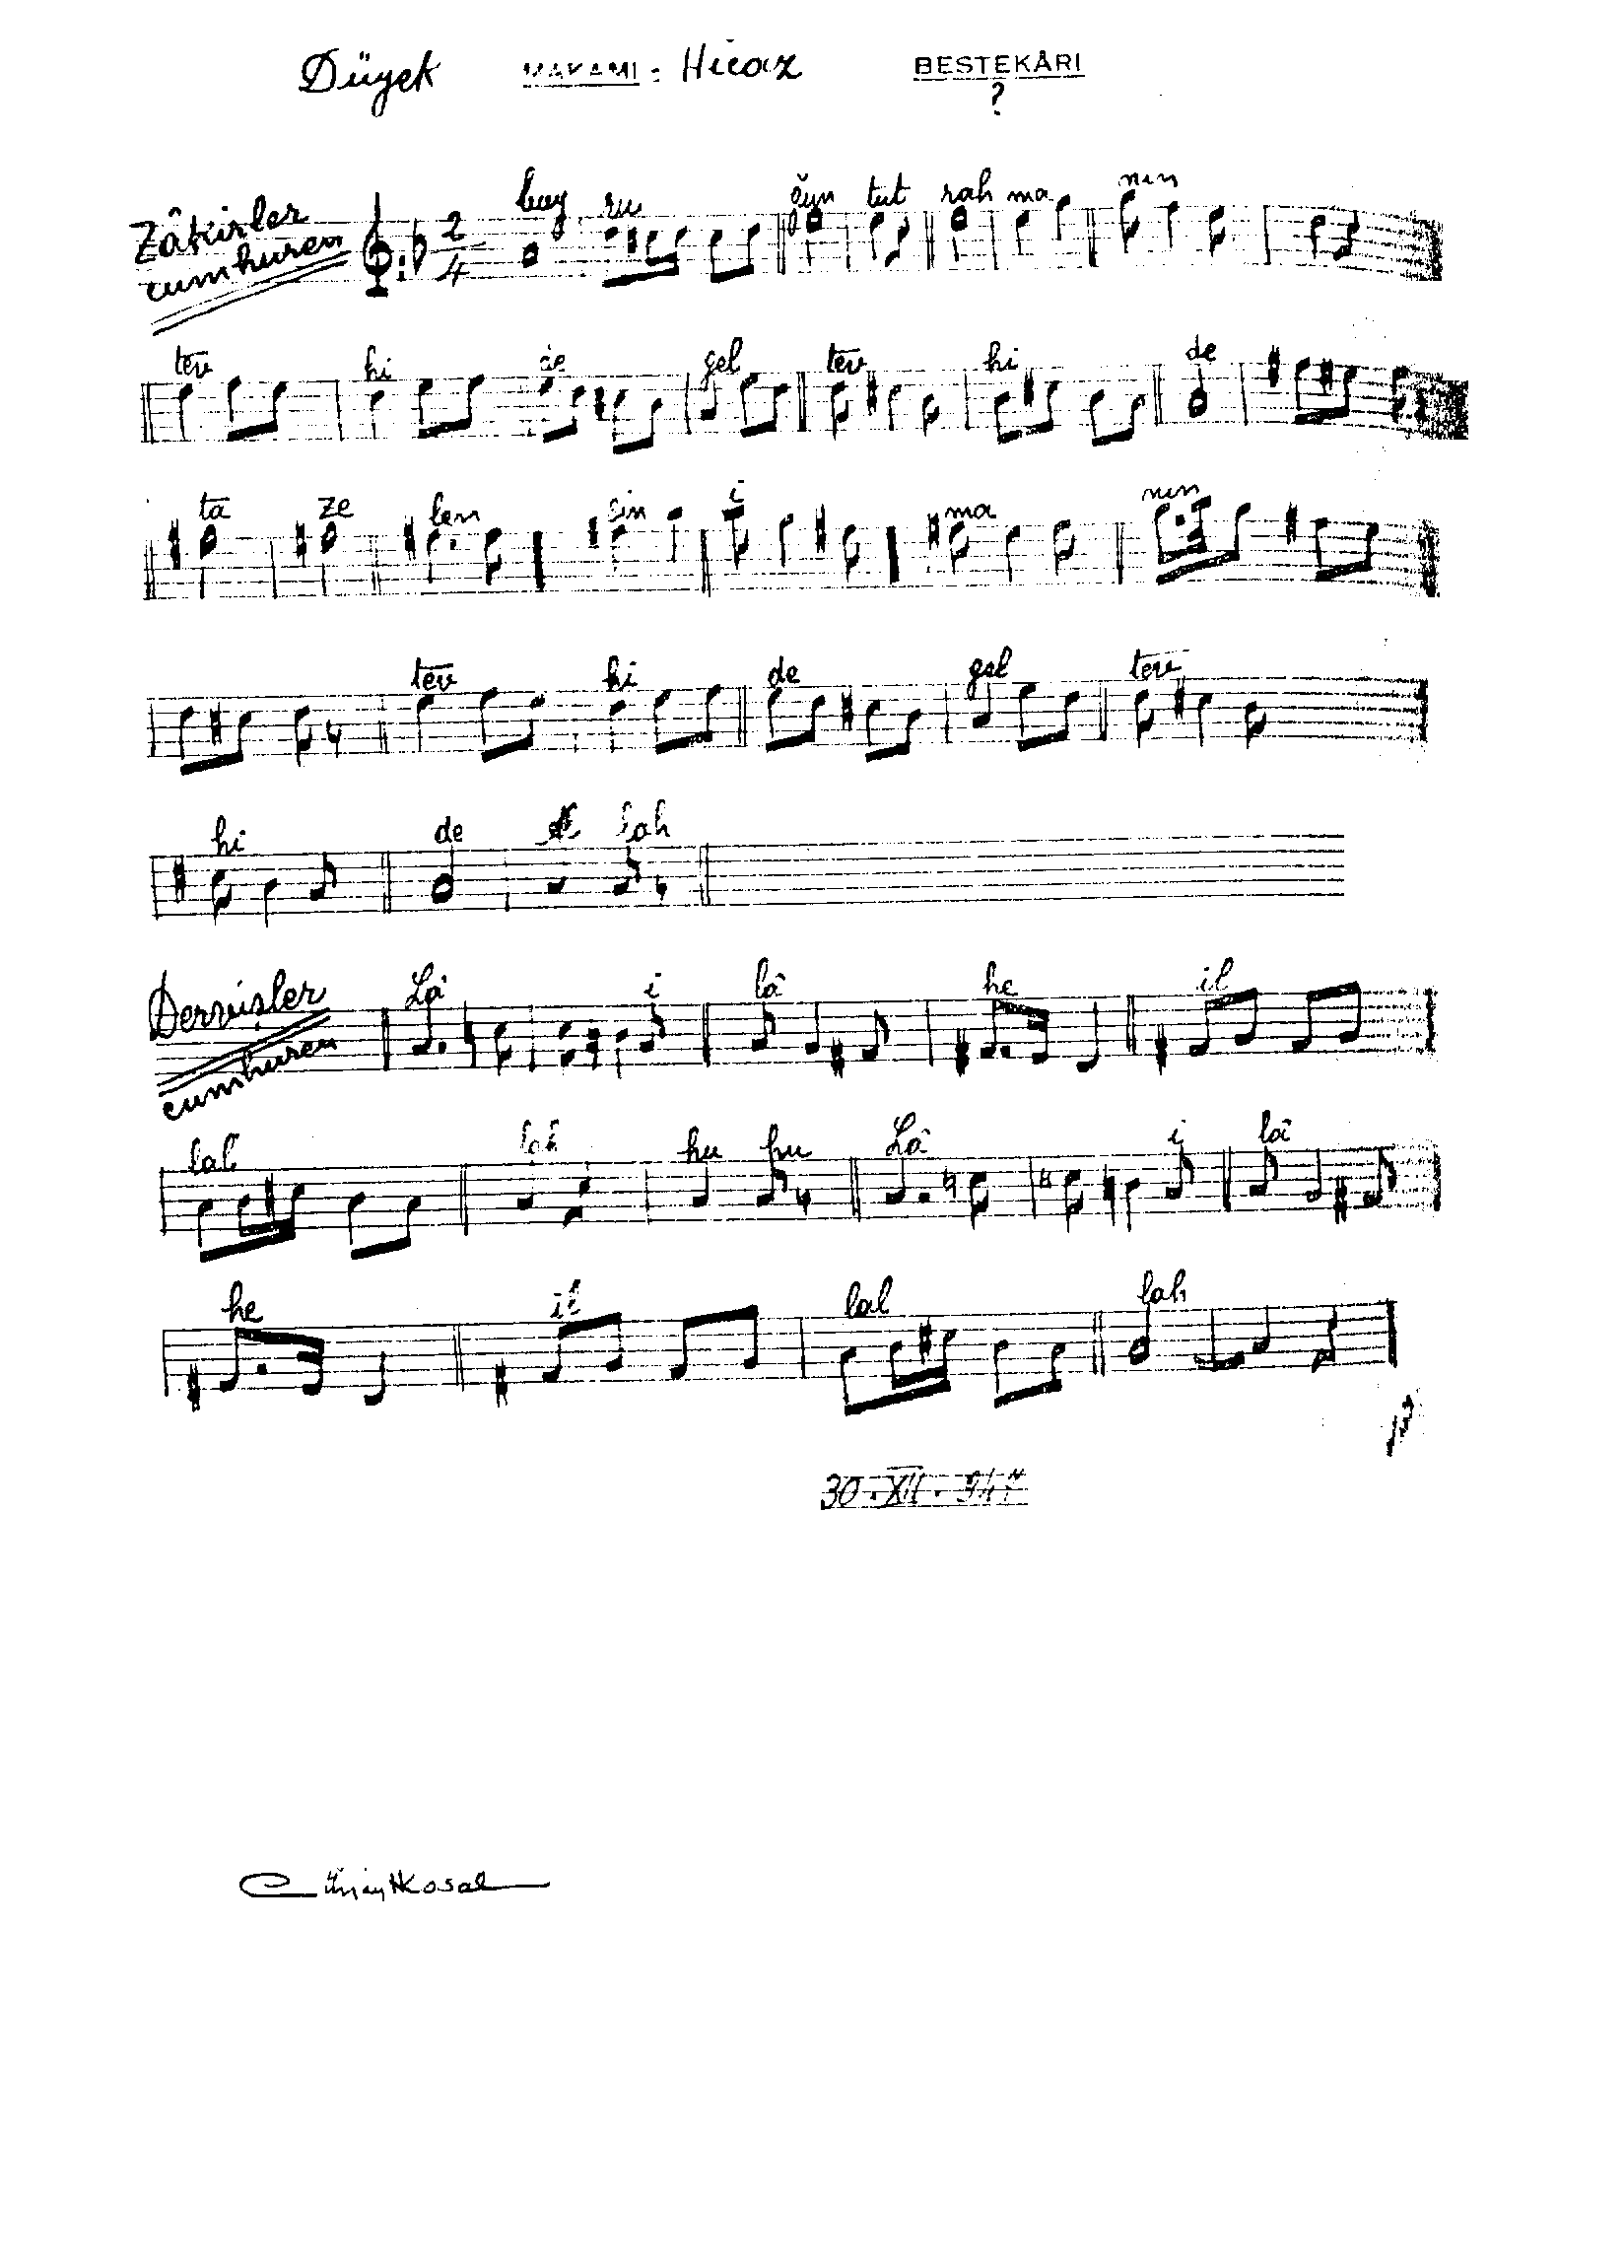 Düyek MAKAMI : Hicaz BESTEKÂRI
?
Zâkirler
cumhuren
2
4
buy ru ğun tut rah ma nın
tev hi de gel tev hi de
ta ze len sin i ma nın
tev hi de gel tev
hi de lah
Dervişler
cumhuren
Lâ i lâ he il
lal lah hu hu Lâ i lâ
he il lal lah
30 . XII . 947